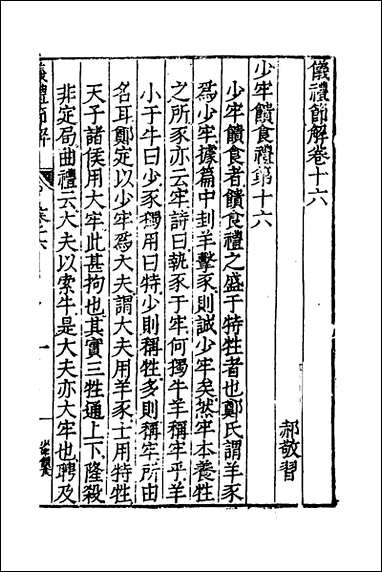 儀禮節解卷十六
郝敬習
少牢饋食禮第十六
少牢饋食者饋食禮之盛于特牲者也鄭氏謂羊豕
爲少牢據篇中刲羊擊豕則誠少牢矣然牢本養牲
之所豕亦云牢詩曰執豕于牢何獨牛羊稱牢乎羊
小于牛曰少豕獨用曰特少則稱牲多則稱牢所由
名耳鄭定以少牢爲大夫謂大夫用羊豕士用特牲
天子諸侯用大牢此甚拘也其實三牲通上下隆殺
非定局曲禮云大夫以索牛是大夫亦大牢也聘及
儀禮節解
卷十六
一